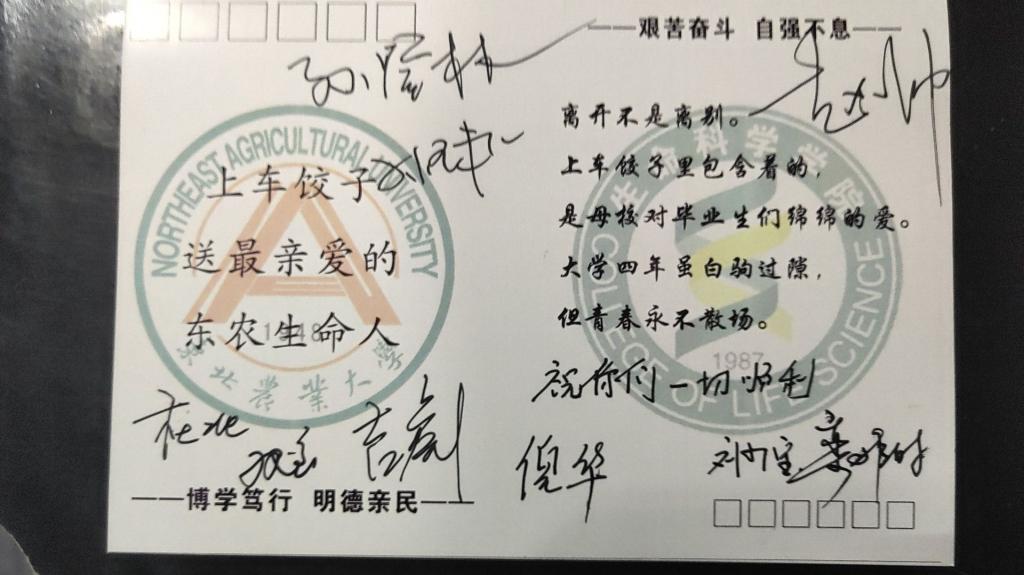 ——艰苦奋斗 自强不息——
NORTHEAST AGRICULTURAL UNIVERSITY
上车饺子
送最亲爱的
东农生命人
1948
东北农业大学
生命科学学院
离开不是离别。
上车饺子里包含着的，
是母校对毕业生们绵绵的爱。
大学四年虽白驹过隙，
但青春永不散场。
1987
COLLEGE OF LIFE SCIENCE
祝你们一切顺利
倪华
——博学笃行 明德亲民——